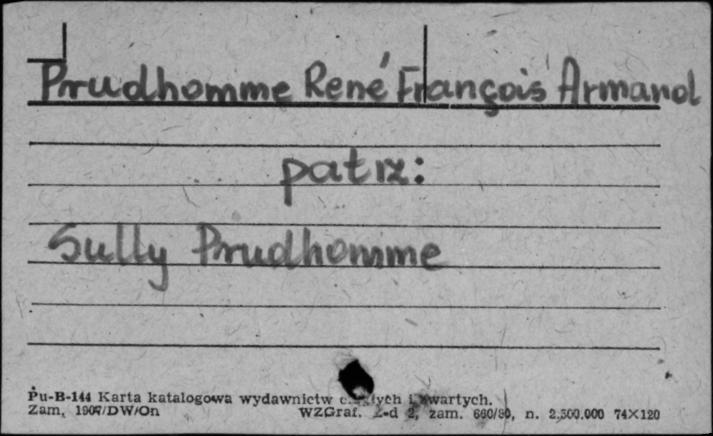 Prudhomme René François Armand
patrz:
Sully Prudhomme
Pu-B-144 Karta katalogowa wydawnictw i zwartych.
Zam. 1907/DW/On WZGraf. Z-d 2, zam. 660/80, n. 2.300.000 74×120